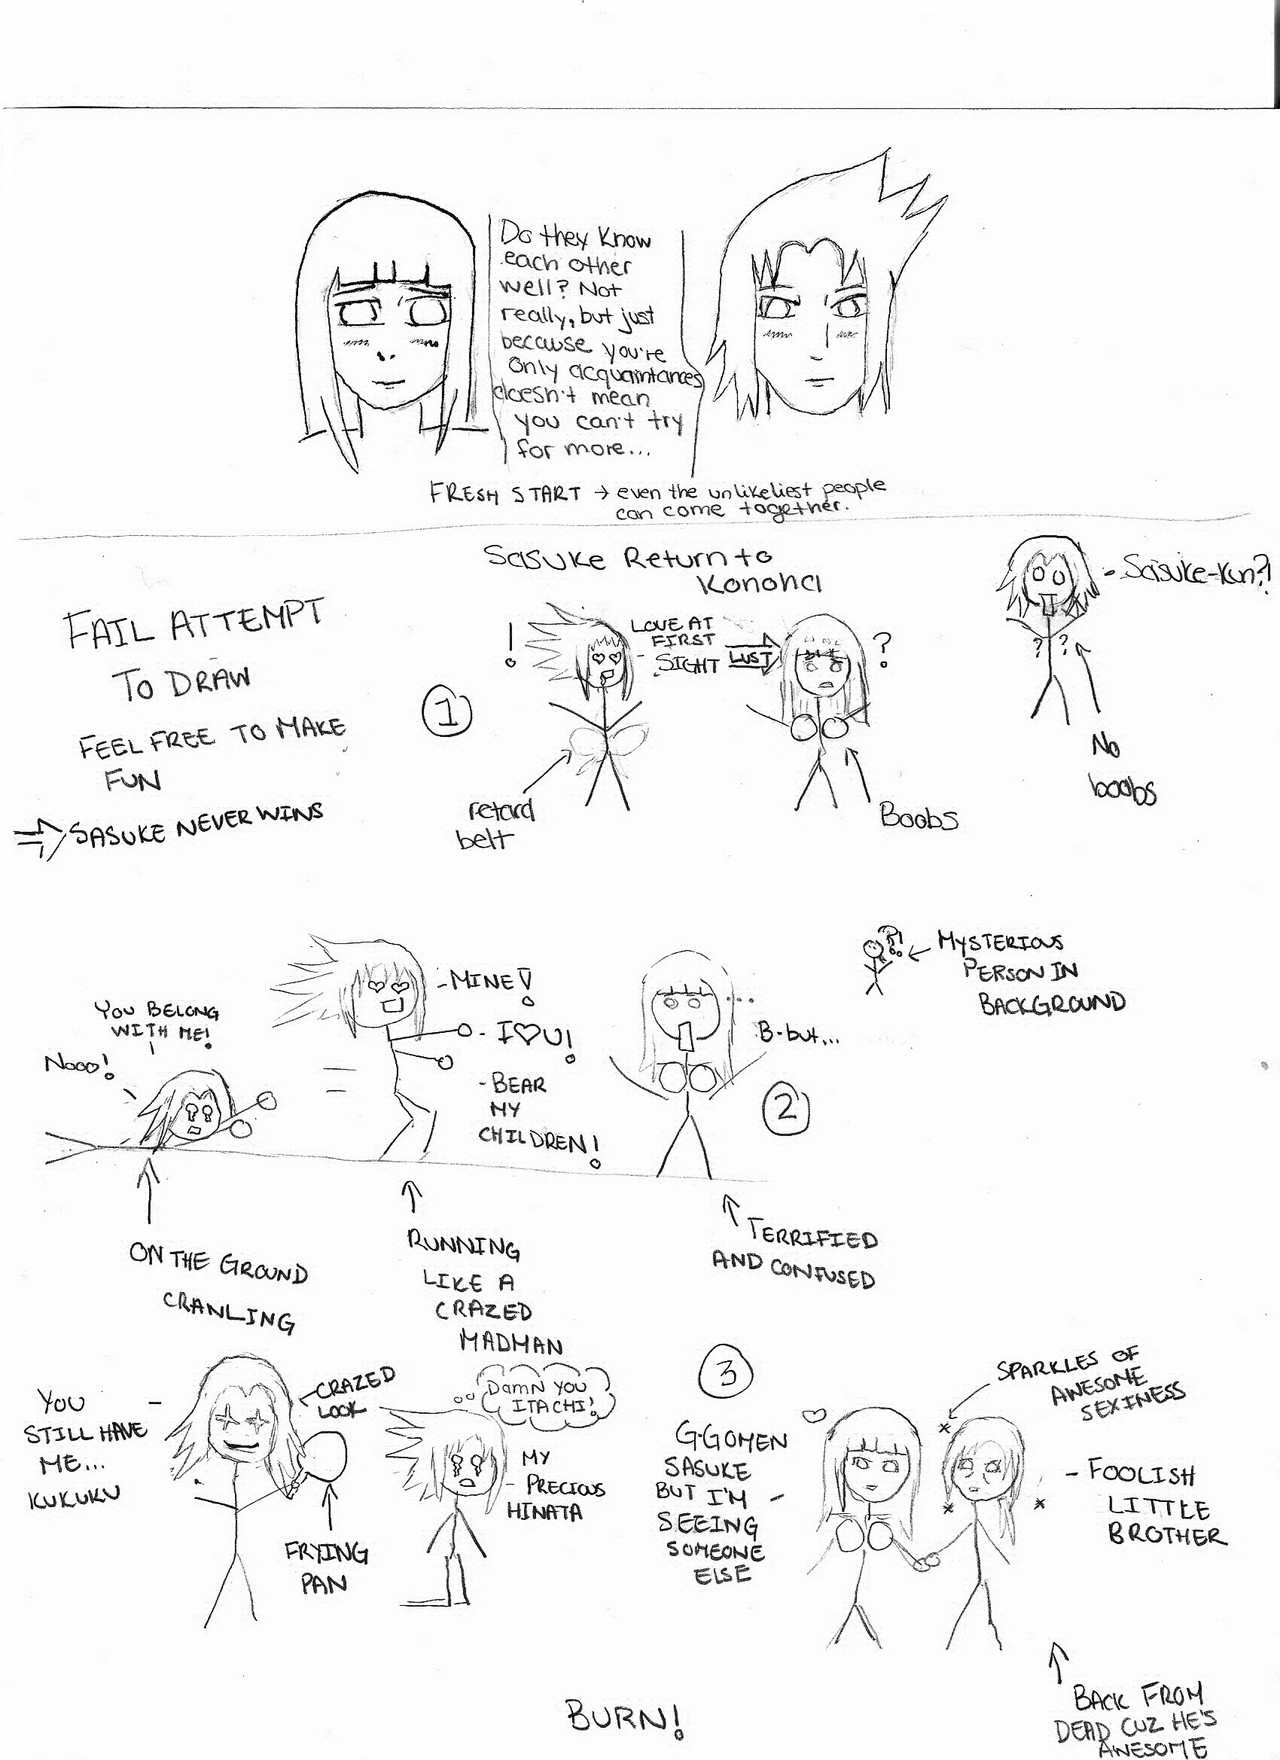 Do they know
each other
well? Not
really, but just
because you're
only acquaintances
doesn't mean
you can't try
for more...
FRESH START → even the unlikeliest people
can come together.
FAIL ATTEMPT
TO DRAW
FEEL FREE TO MAKE
FUN
⇒ SASUKE NEVER WINS
Sasuke Return to
Konoha
1
!
LOVE AT
FIRST
SIGHT
LUST
?
- Sasuke-kun?!
? ?
No
boobs
retard
belt
Boobs
YOU BELONG
WITH ME!
Nooo!
- MINE!
- I♡U!
- BEAR
MY
CHILDREN!
...
B-but...
2
?!
MYSTERIOUS
PERSON IN
BACKGROUND
ON THE GROUND
CRANLING
RUNNING
LIKE A
CRAZED
MADMAN
TERRIFIED
AND CONFUSED
YOU
STILL HAVE
ME...
KUKUKU
CRAZED
LOOK
FRYING
PAN
DAMN YOU
ITACHI!
MY
PRECIOUS
HINATA
3
G-GOMEN
SASUKE
BUT I'M
SEEING
SOMEONE
ELSE
SPARKLES OF
AWESOME
SEXINESS
- FOOLISH
LITTLE
BROTHER
BACK FROM
DEAD CUZ HE'S
AWESOME
BURN!